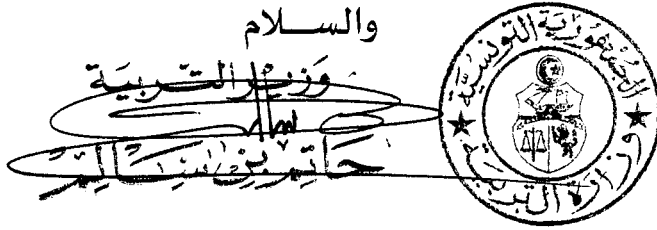 والســلام
وَزيرُ التربيَة
حَاتِم بن سَالِم
الجمهورية التونسية
وزارة التربية